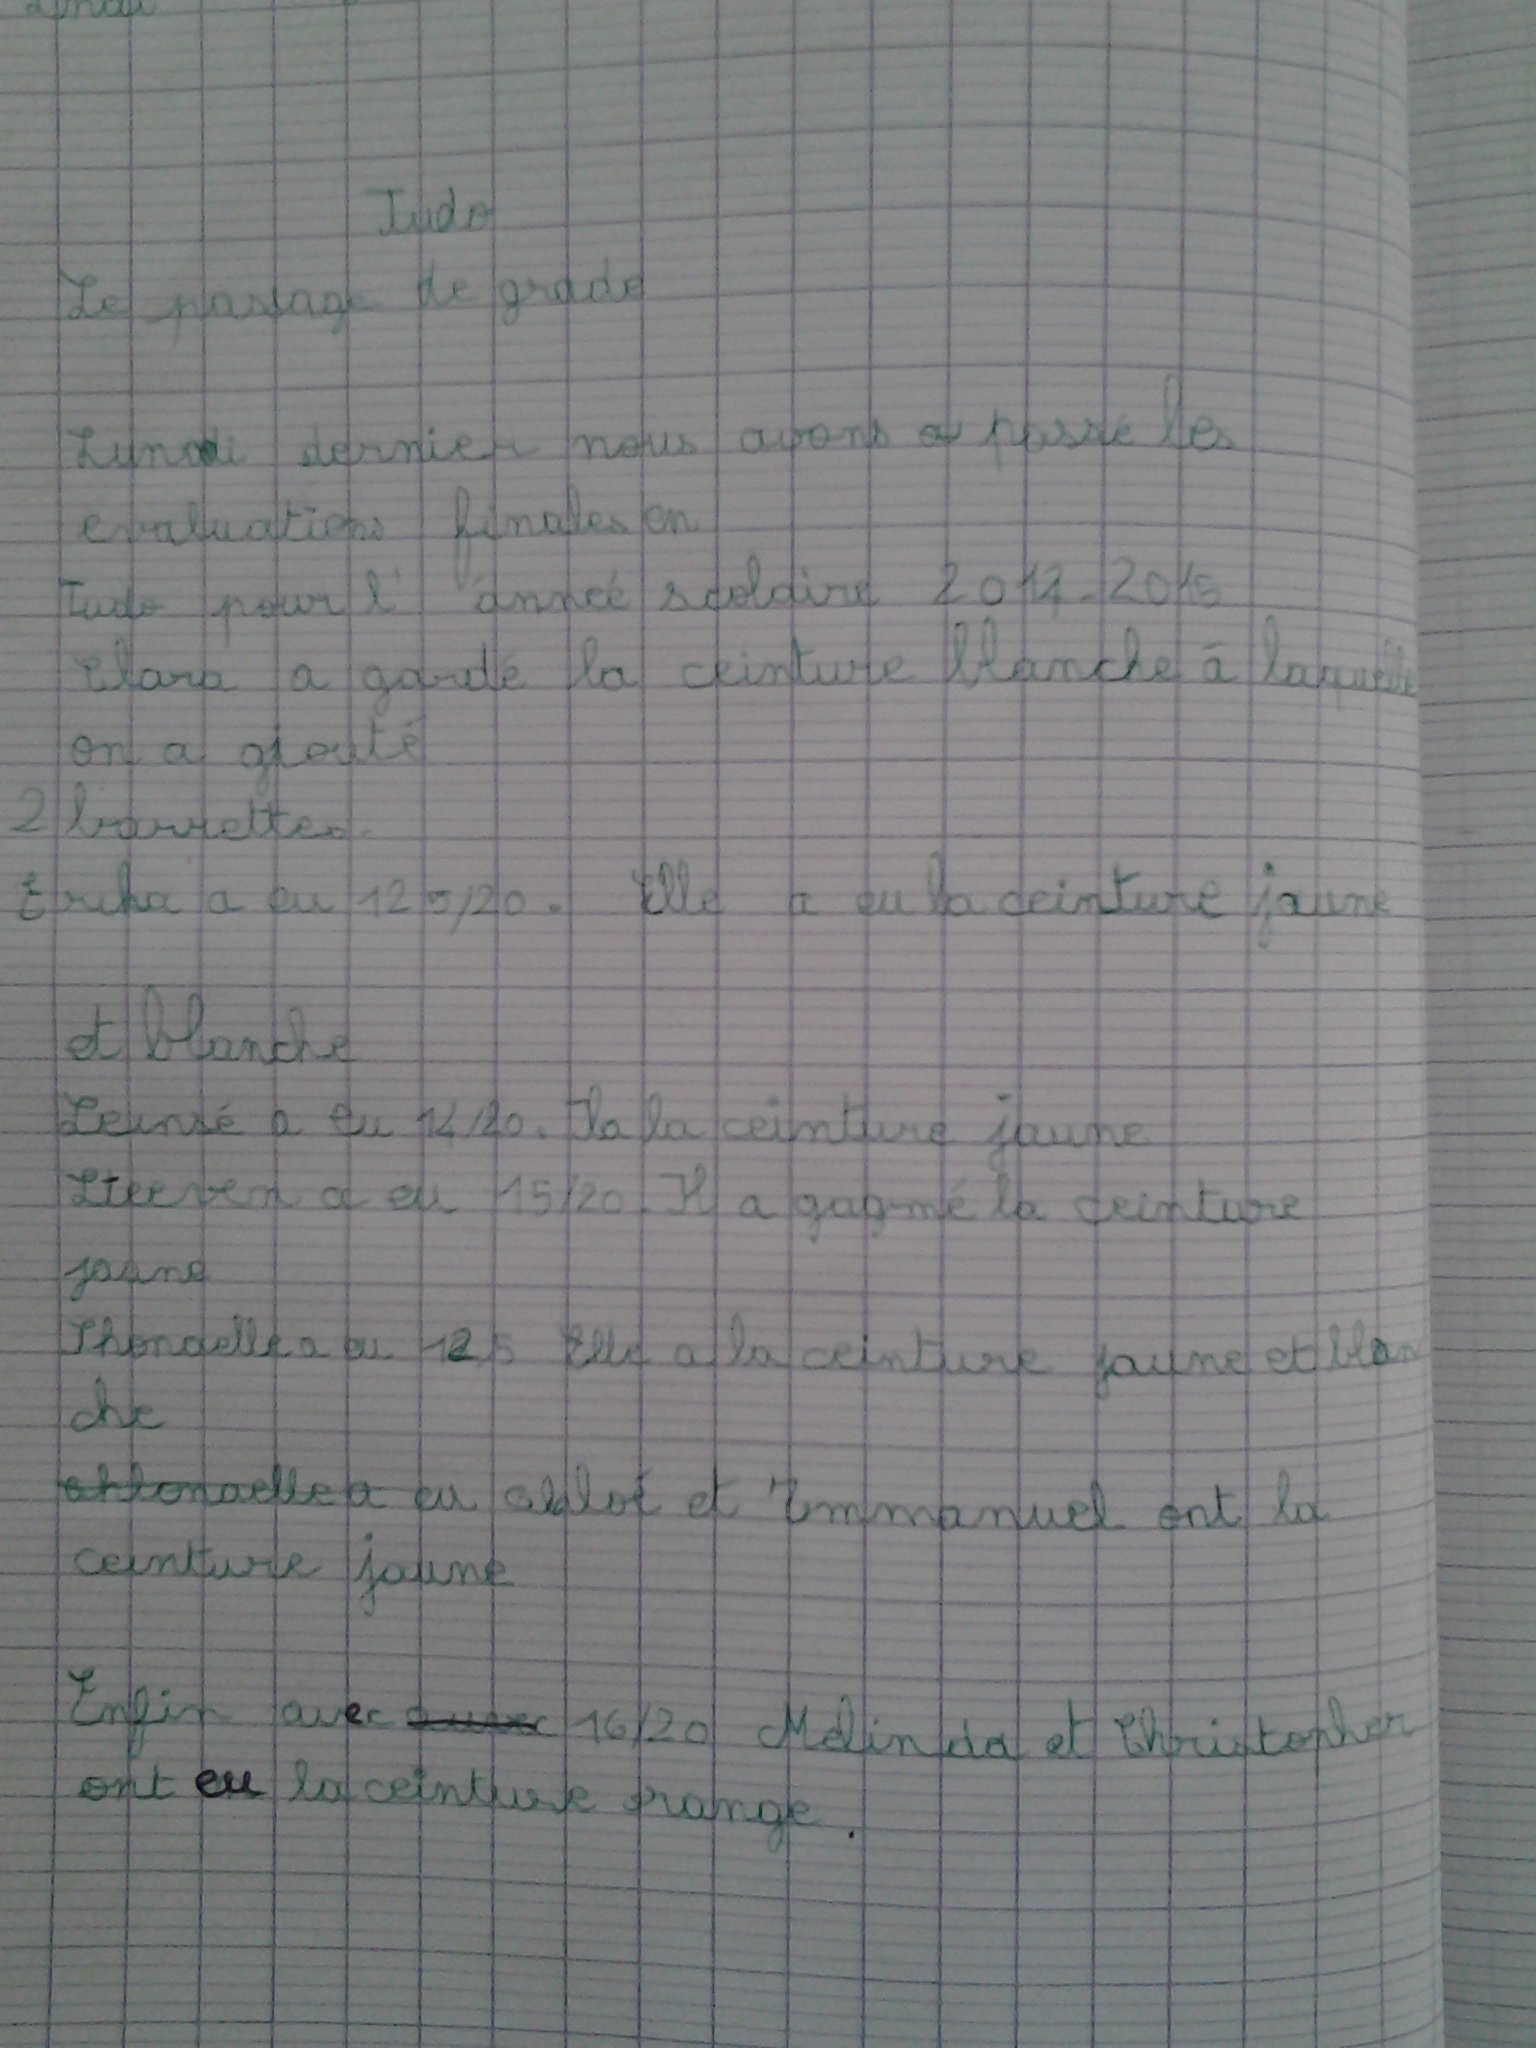 Judo
Le passage de grade
Lundi dernier nous avons passé les
evaluations finales en
Judo pour l'année scolaire 2014-2015
Clara a gardé la ceinture blanche à laquelle
on a ajouté
2 barrettes.
Erika a eu 12 5/20. Elle a eu la ceinture jaune
et blanche
a eu 14/20. Il a la ceinture jaune
Steeven a eu 15/20. Il a gagné la ceinture
jaune
a eu 12,5 Elle a la ceinture jaune et blan
che
eu et Emmanuel ont la
ceinture jaune
Enfin avec 16/20 Mélinda et Christopher
ont eu la ceinture orange.